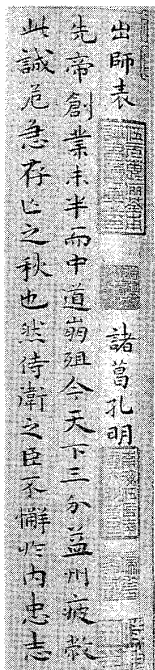 出師表　諸葛孔明
先帝創業未半而中道崩殂今天下三分益州疲敝
此誠危急存亡之秋也然侍衛之臣不懈於內忠志